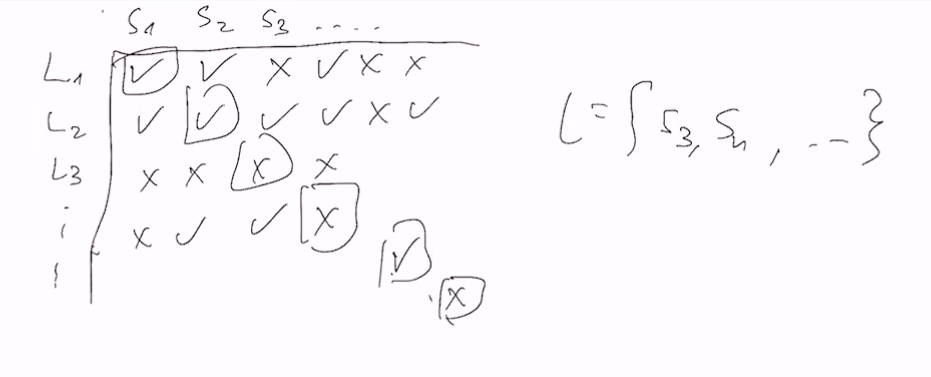 S1 S2 S3 ....
L1 ✓ ✓ x ✓ x x
L2 ✓ ✓ ✓ ✓ x ✓
L3 x x x x
x ✓ ✓ x
✓
x
L = { S3, S4, ... }